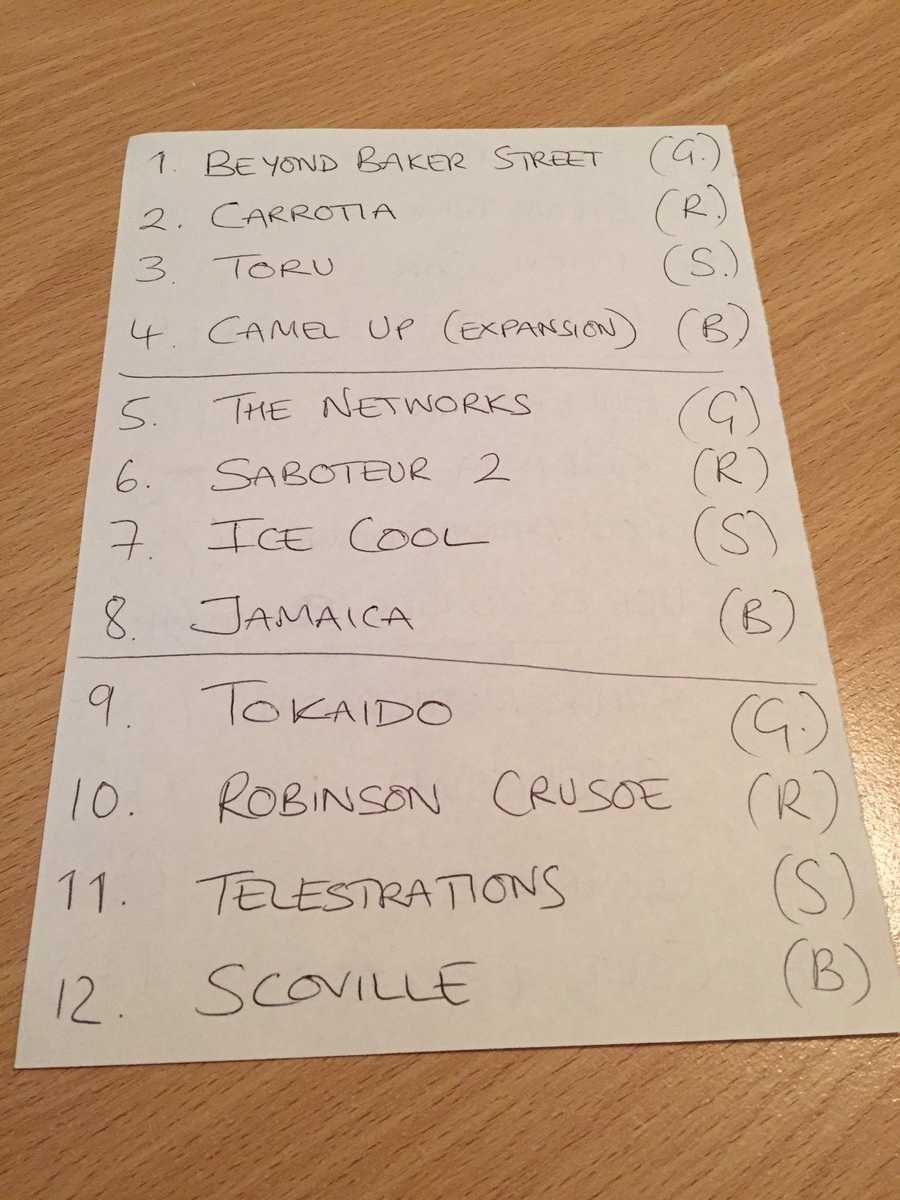 1. BEYOND BAKER STREET (G.)
2. CARROTIA (R.)
3. TORU (S.)
4. CAMEL UP (EXPANSION) (B)
5. THE NETWORKS (G)
6. SABOTEUR 2 (R)
7. ICE COOL (S)
8. JAMAICA (B)
9. TOKAIDO (G.)
10. ROBINSON CRUSOE (R)
11. TELESTRATIONS (S)
12. SCOVILLE (B)